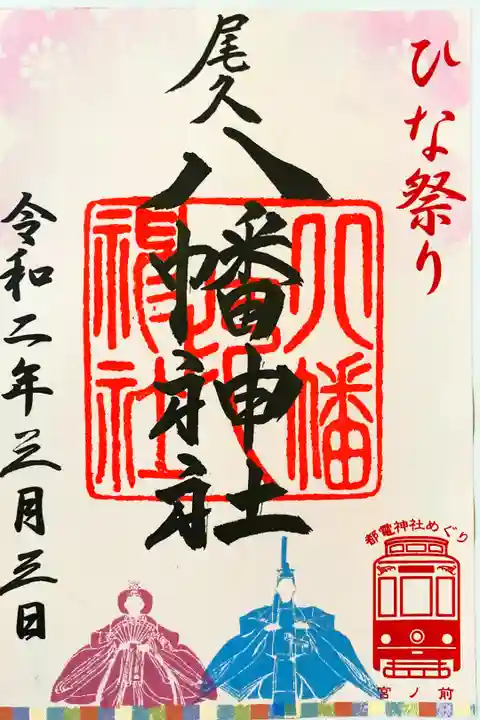 ひな祭り
尾久
八幡神社
八幡
神社
令和二年三月三日
都電神社めぐり
宮ノ前